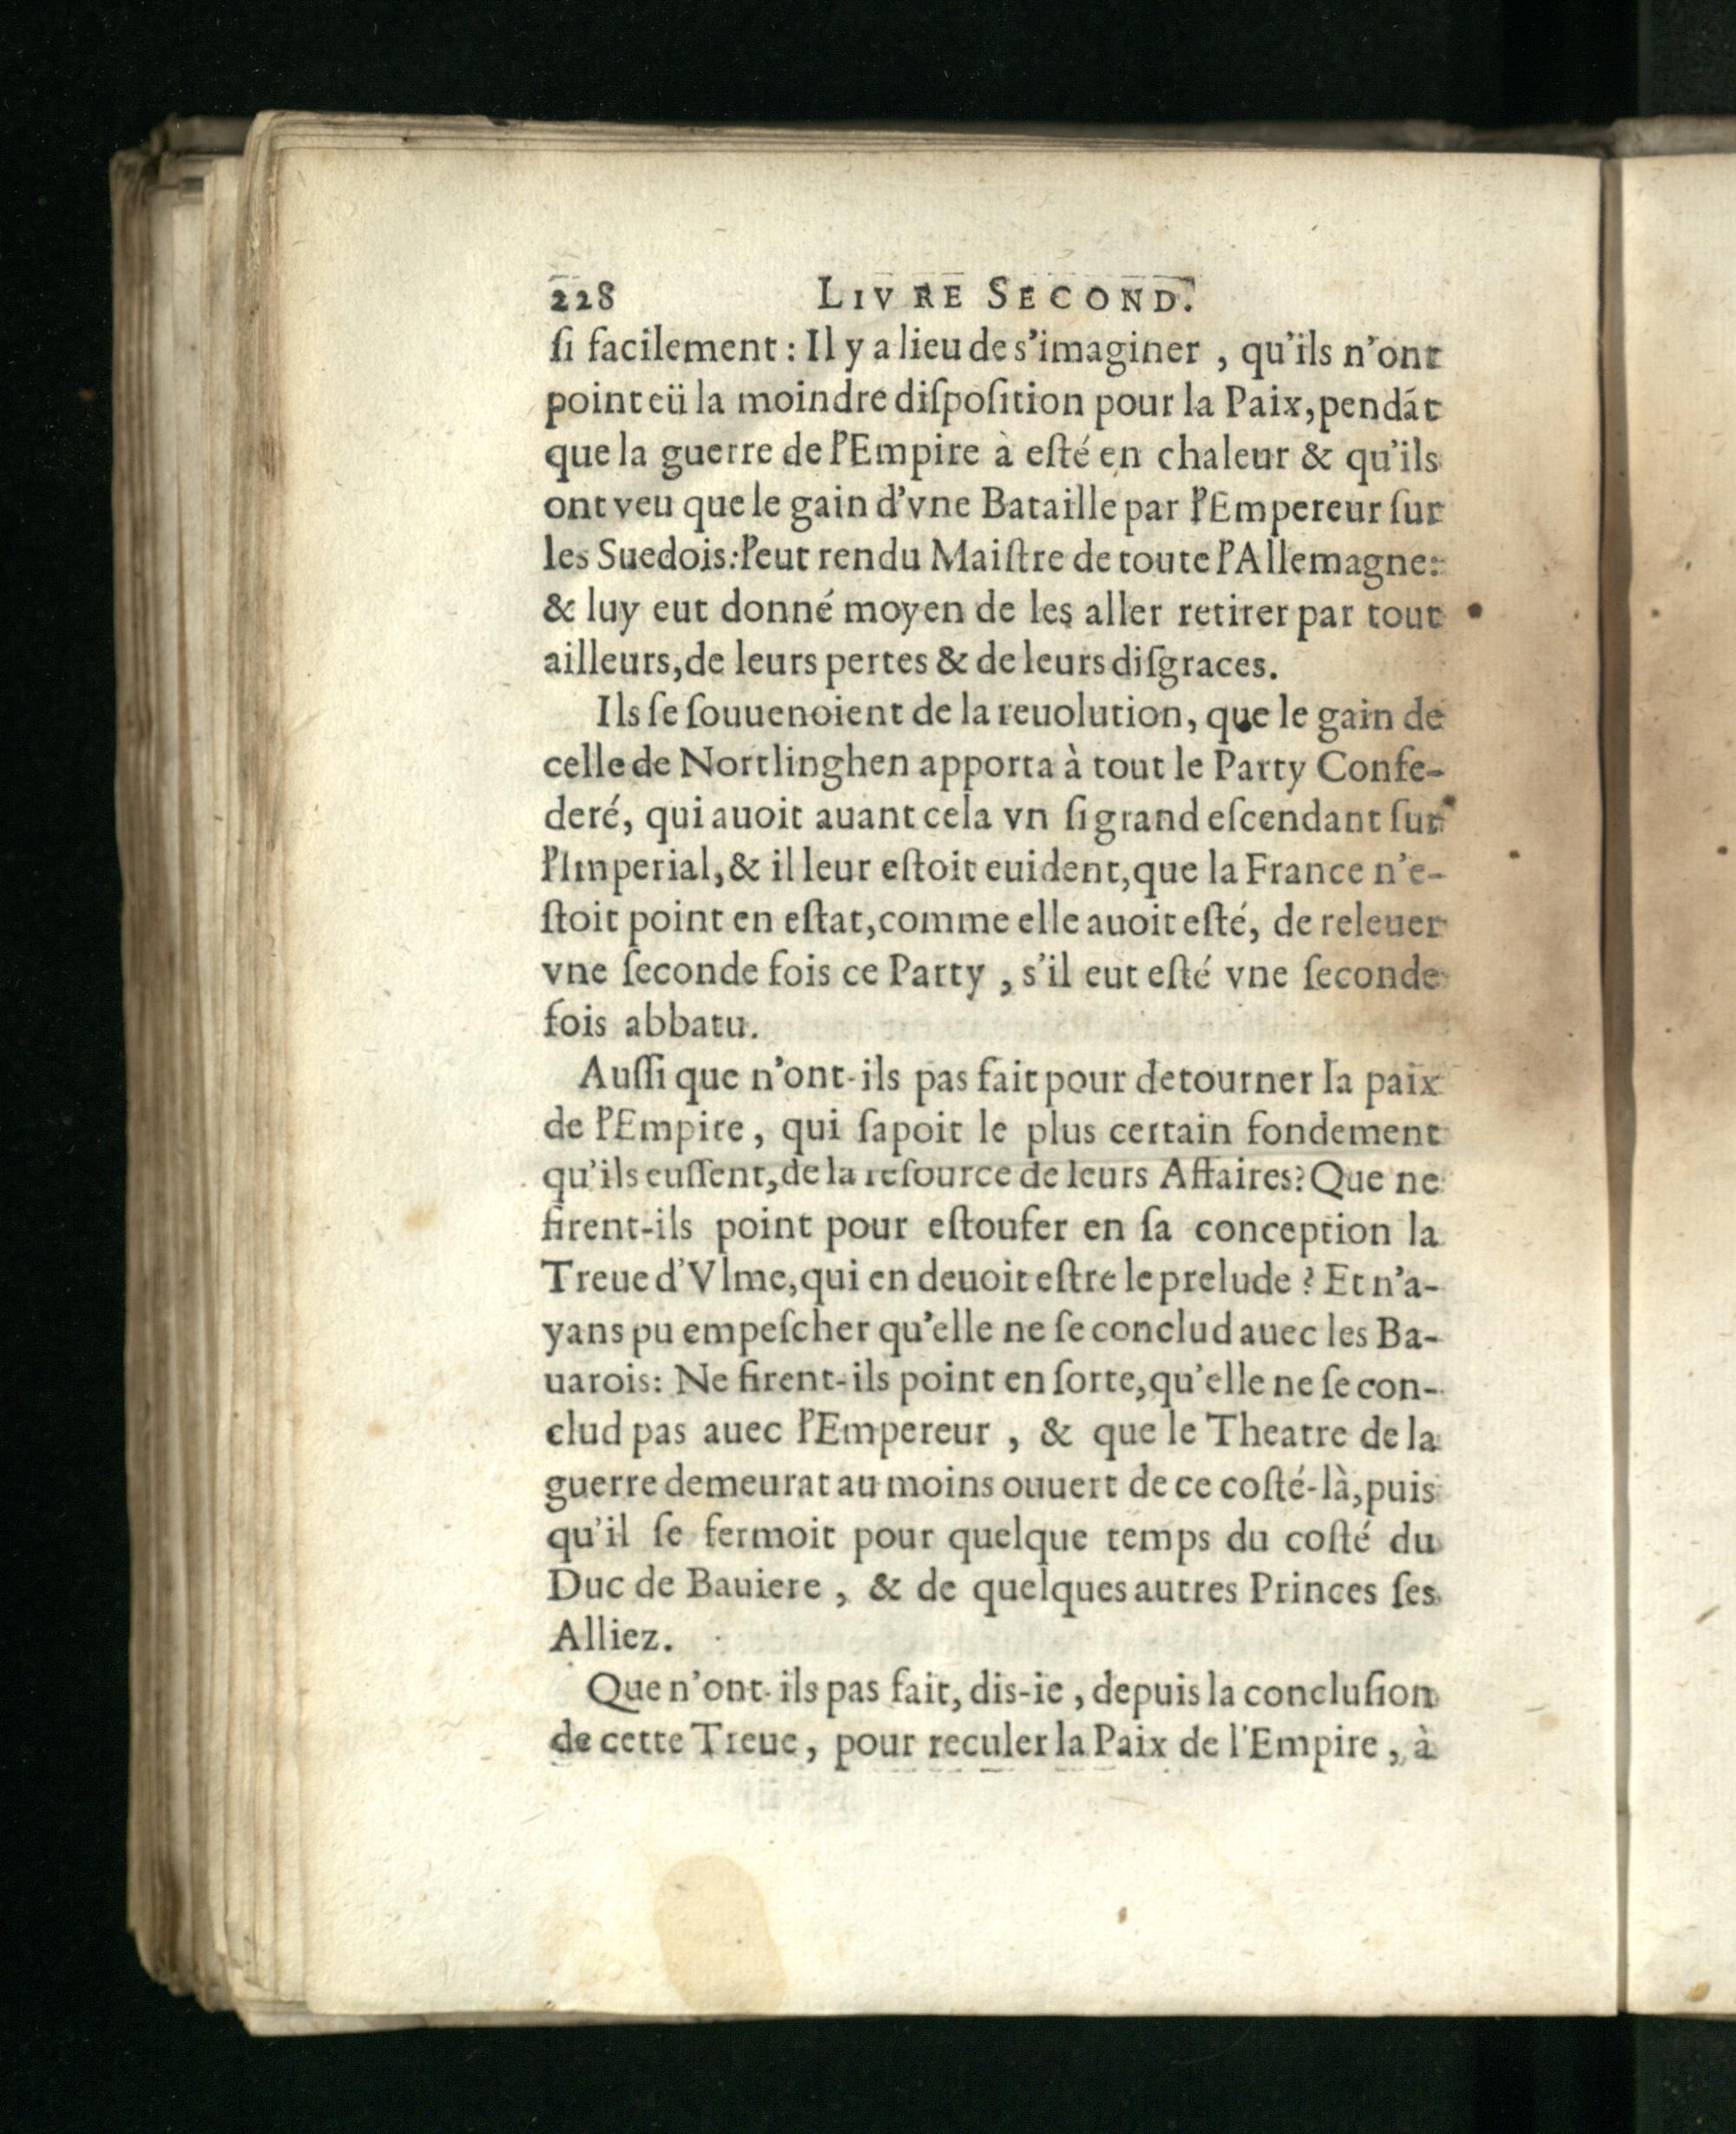 228 LIVRE SECOND.
ſi facilement : Il y a lieu de s'imaginer , qu'ils n'ont
point eü la moindre diſpoſition pour la Paix, pendãt
que la guerre de l'Empire à eſté en chaleur & qu'ils
ont veu que le gain d'vne Bataille par l'Empereur ſur
les Suedois: l'eut rendu Maiſtre de toute l'Allemagne:
& luy eut donné moyen de les aller retirer par tout
ailleurs, de leurs pertes & de leurs diſgraces.
Ils ſe ſouuenoient de la reuolution, que le gain de
celle de Nortlinghen apporta à tout le Party Confe-
deré, qui auoit auant cela vn ſi grand eſcendant ſur
l'Imperial, & il leur eſtoit euident, que la France n'e-
ſtoit point en eſtat, comme elle auoit eſté, de releuer
vne ſeconde fois ce Party , s'il eut eſté vne ſeconde
fois abbatu.
Auſſi que n'ont-ils pas fait pour detourner la paix
de l'Empire, qui ſapoit le plus certain fondement
qu'ils euſſent, de la reſource de leurs Affaires? Que ne
firent-ils point pour eſtoufer en ſa conception la
Treue d'Vlme, qui en deuoit eſtre le prelude ? Et n'a-
yans pu empeſcher qu'elle ne ſe conclud auec les Ba-
uarois: Ne firent-ils point en ſorte, qu'elle ne ſe con-
clud pas auec l'Empereur , & que le Theatre de la
guerre demeurat au moins ouuert de ce coſté-là, puis
qu'il ſe fermoit pour quelque temps du coſté du
Duc de Bauiere , & de quelques autres Princes ſes
Alliez.
Que n'ont-ils pas fait, dis-ie , depuis la concluſion
de cette Treue , pour reculer la Paix de l'Empire , à